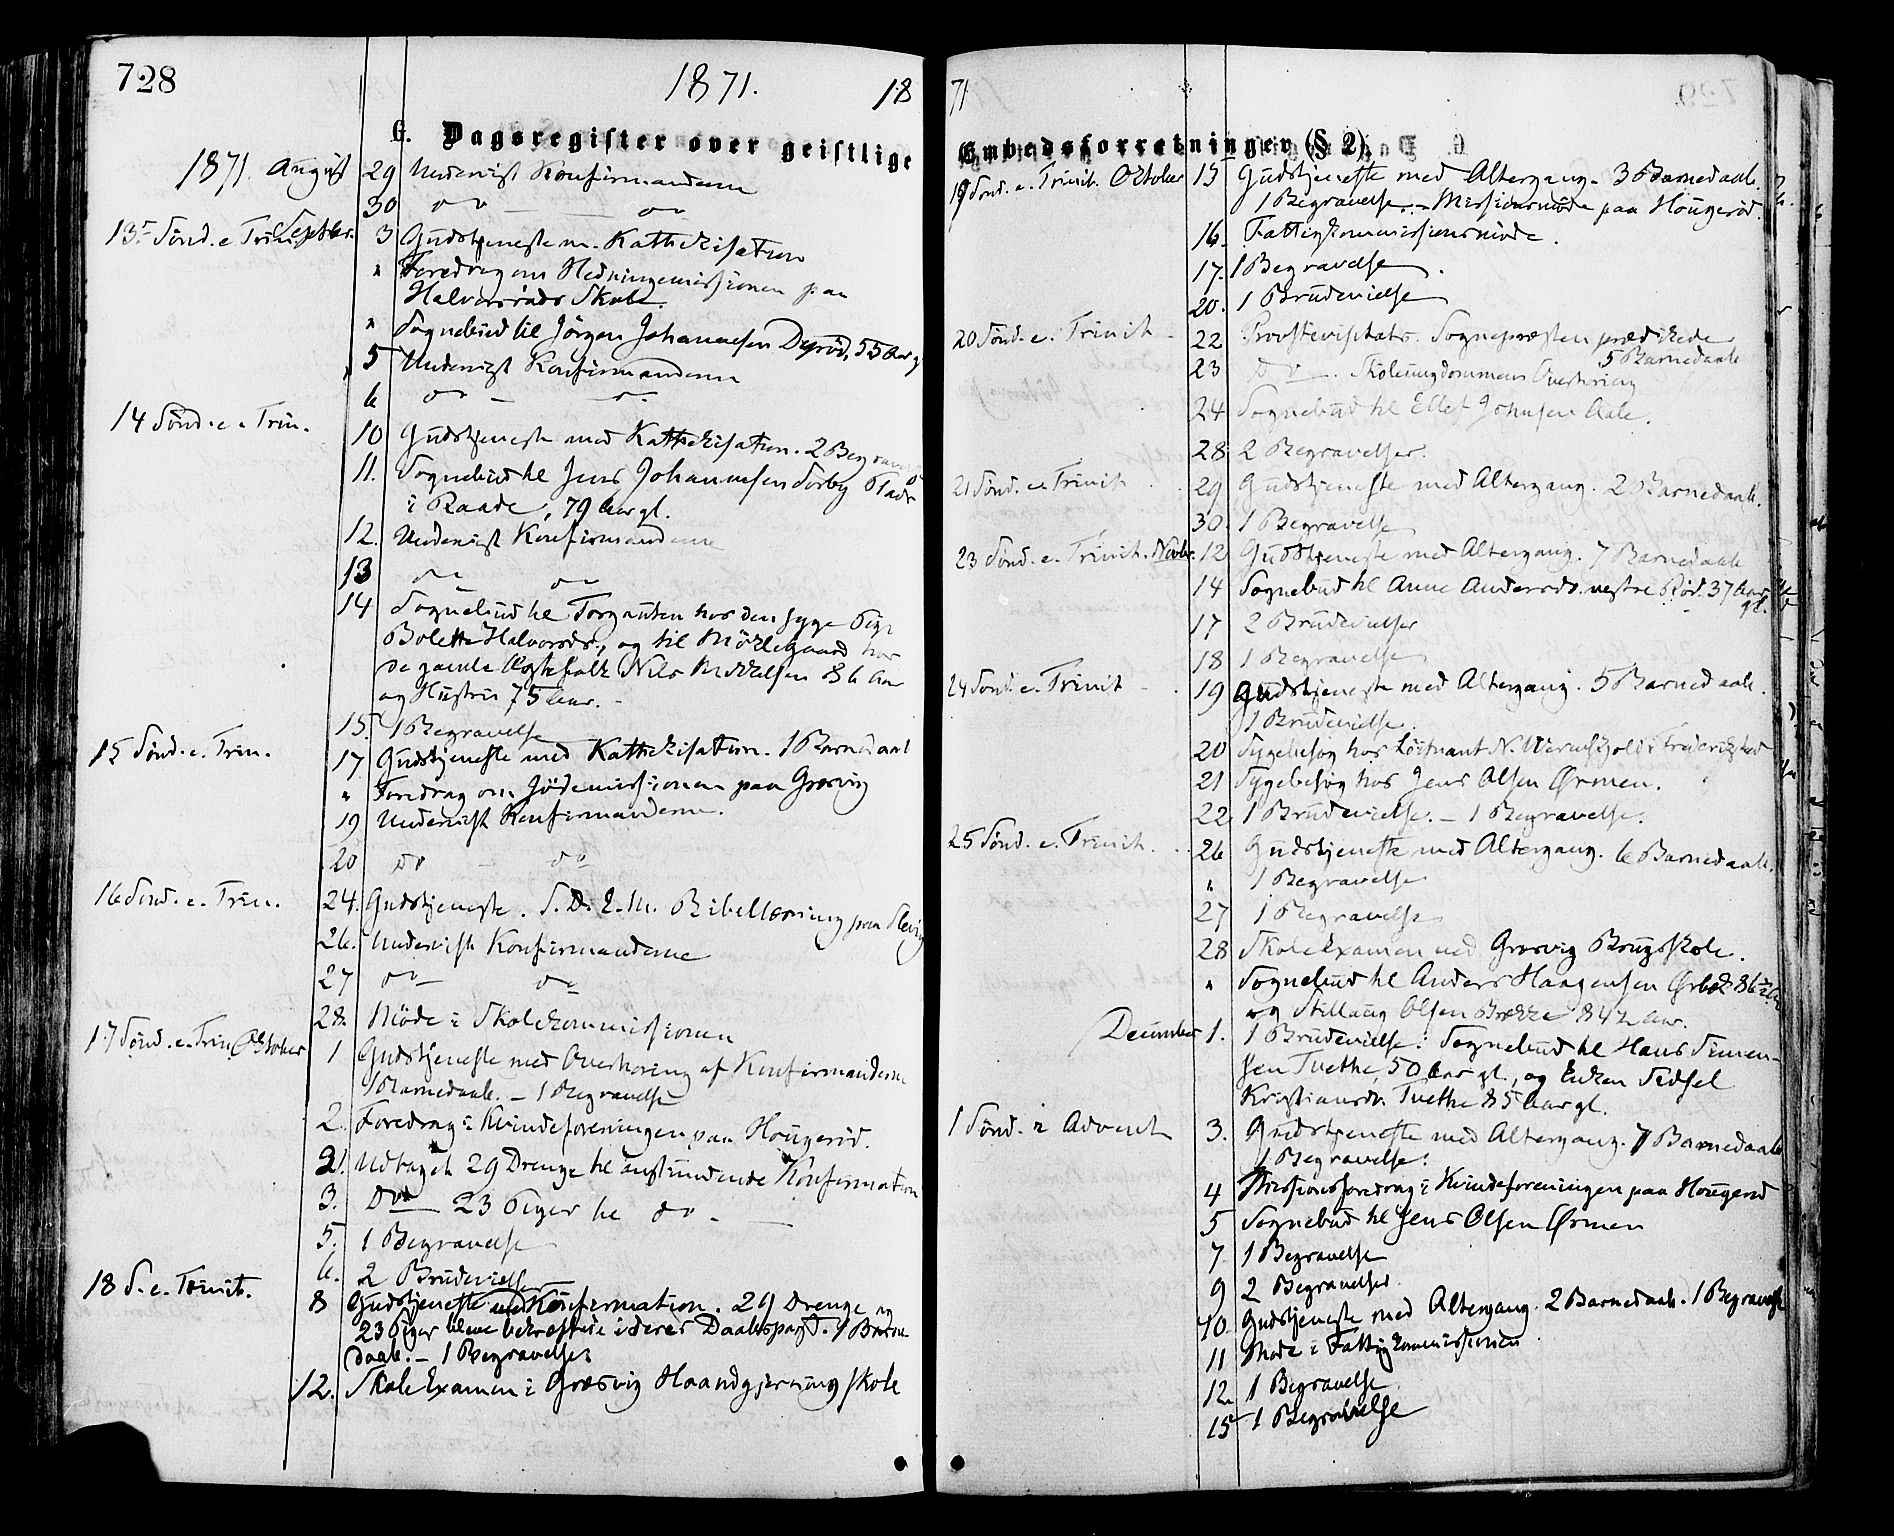 728
1871.
18
G. Dagsregister over geistlige
1871. August 29 Underviist Konfirmanderne
30 do — do
13de Sønd. e Trin. Septbr. 3 Gudstjeneste m. Kathekisation
" Foredrag om Hedningemissionen paa
Halvorsrøds Skole.
" Sognebud til Jørgen Johannesen Dyrød, 55 Aar g
5 Underviist Konfirmanderne
6 do — do
14 Sønd. e. Trin. 10 Gudstjeneste med Kathekisation. 2 Begravelser
11. Sognebud til Jens Johannesen Sorby Plads
i Raade, 79 Aar gl.
12. Underviist Konfirmanderne
13 do do
14 Sognebud til Torgauten hos den syge Pige
Bolette Halvorsdr., og til Mörkegaard hos
de gamle Ægtefolk Nils Mikkelsen 86 Aar
og Hustru 75 Aar.
15. 1 Begravelse
15 Sønd. e. Trin. 17 Gudstjeneste med Kathekisation. 1 Barnedaab
" Foredrag om Jødemissionen paa Græsvig
19 Underviist Konfirmanderne.
20 do — do
16 Sønd. e. Trin. 24. Gudstjeneste. S. D. E. M. Bibellæsning paa Slevig
26. Underviist Konfirmanderne
27 do — do
28. Möde i Skolekommissionen
17 Sønd. e. Trin Oktober 1 Gudstjeneste med Overhøring af Konfirmanderne
1 Barnedaab. — 1 Begravelse
2. Foredrag i Kvindeforeningen paa Hougerød.
2. Udtaget 29 Drenge til anstundende Konfirmation
3. Do 23 Piger til do —
5. 1 Begravelse
6. 2 Brudevielser
18 S. e. Trinit. 8 Gudstjeneste med Konfirmation. 29 Drenge og
23 Piger bleve bekræftede i deres Daabspagt. 1 Barne
daab. — 1 Begravelse
12. Skole Examen i Græsvig Haandgjerningsskole
71
Embedsforretninger (§ 2)
19 Sønd. e. Trinit. Oktober 15 Gudstjeneste med Altergang. 3 Barnedaab.
1 Begravelse. — Missionsmøde paa Hougerød.
16. Fattigkommissionsmöde.
17. 1 Begravelse.
20. 1 Brudevielse
20 Sønd. e. Trinit. 22 Provstevisitats. Sognepræsten prædikede
5 Barnedaab
23 Do —. Skoleungdommens Overhøring
24 Sognebud til Ellef Johnsen Aale.
28. 2 Begravelser.
21 Sønd. e. Trinit. 29 Gudstjeneste med Altergang. 2 Barnedaab.
30. 1 Begravelse
23 Sønd. e. Trinit. Novbr. 12 Gudstjeneste med Altergang. 7 Barnedaab
14 Sognebud til Anne Andersdr. vestre Rød. 37 Aar
gl.
17 2 Brudevielser
18 1 Begravelse
24 Sønd. e. Trinit. 19 Gudstjeneste med Altergang. 5 Barnedaab.
1 Brudevielse.
20 Sygebesøg hos Løitnant N. Werenskjold i Frederikstad
21 Sygebesøg hos Jens Olsen Ørmen.
22 1 Brudevielse. — 1 Begravelse.
25 Sønd. e. Trinit. 26 Gudstjeneste med Altergang. 6 Barnedaab.
" 1 Begravelse
27 1 Begravelse
28 Skole Examen ved Græsvig Brugsskole.
" Sognebud til Anders Haagensen Ørbek 86 ½ Aar
og Stillaug Olsen Brekke 84 ½ Aar.
December 1. 1 Brudevielse. Sognebud til Hans Simen-
sen Tvethe, 50 Aar gl., og Enken Sidsel
Kristiansdr. Tvethe 85 Aar gl.
1 Sønd. i Advent 3. Gudstjeneste med Altergang. 7 Barnedaab
1 Begravelse.
4 Missionsforedrag i Kvindeforeningen paa Hougerød
5 Sognebud til Jens Olsen Ørmen
7 1 Begravelse
9 2 Begravelser
10. Gudstjeneste med Altergang. 2 Barnedaab. 1 Begravelse
11 Møde i Fattigkommissionen
12. 1 Begravelse
15 1 Begravelse